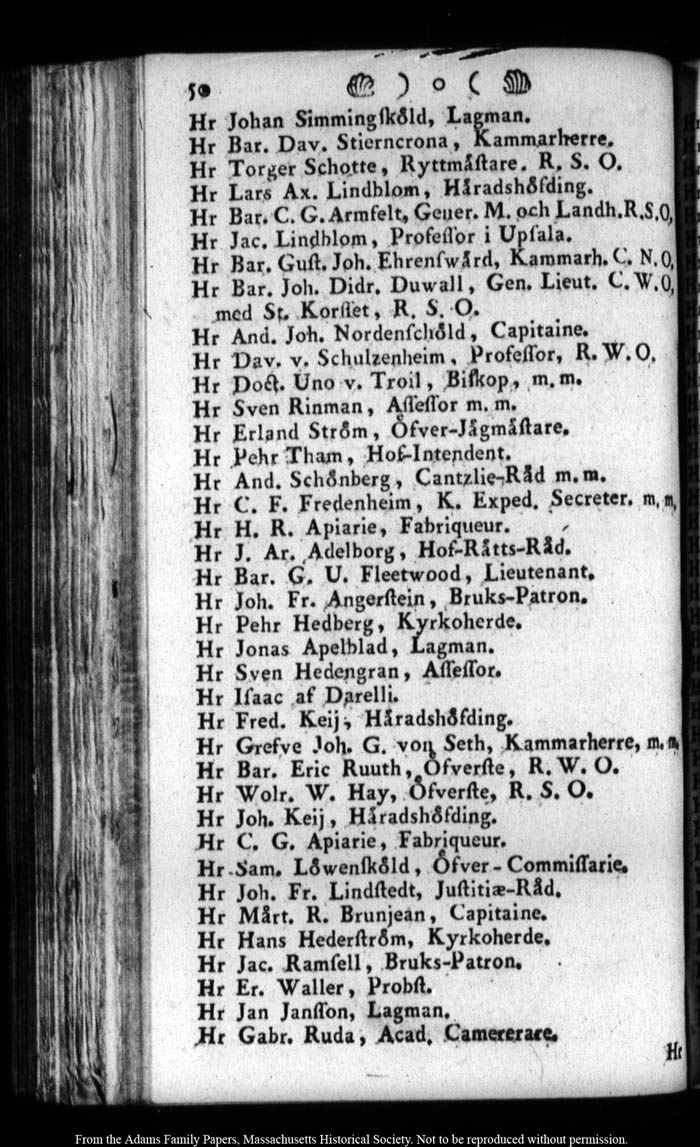 50 ) o (
Hr Johan Simmingſkåld, Lagman.
Hr Bar. Dav. Stierncrona, Kammarherre.
Hr Torger Schotte, Ryttmåſtare. R. S. O.
Hr Lars Ax. Lindblom, Håradshåfding.
Hr Bar. C. G. Armfelt, Gener. M. och Landh. R.S.O,
Hr Jac. Lindblom, Profeſſor i Upſala.
Hr Bar. Guſt. Joh. Ehrenſwård, Kammarh. C. N. O,
Hr Bar. Joh. Didr. Duwall, Gen. Lieut. C. W. O,
med St. Korſſet, R. S. O.
Hr And. Joh. Nordenſchåld, Capitaine.
Hr Dav. v. Schulzenheim, Profeſſor, R. W. O.
Hr Doct. Uno v. Troil, Biſkop, m. m.
Hr Sven Rinman, Aſſeſſor m. m.
Hr Erland Stråm, Öfver-Jågmåſtare.
Hr Pehr Tham, Hof-Intendent.
Hr And. Schånberg, Cantzlie-Råd m. m.
Hr C. F. Fredenheim, K. Exped. Secreter. m. m,
Hr H. R. Apiarie, Fabriqueur.
Hr J. Ar. Adelborg, Hof-Råtts-Råd.
Hr Bar. G. U. Fleetwood, Lieutenant.
Hr Joh. Fr. Angerſtein, Bruks-Patron.
Hr Pehr Hedberg, Kyrkoherde.
Hr Jonas Apelblad, Lagman.
Hr Sven Hedengran, Aſſeſſor.
Hr Iſaac af Darelli.
Hr Fred. Keij, Håradshåfding.
Hr Grefve Joh. G. von Seth, Kammarherre, m. m,
Hr Bar. Eric Ruuth, Öfverſte, R. W. O.
Hr Wolr. W. Hay, Öfverſte, R. S. O.
Hr Joh. Keij, Håradshåfding.
Hr C. G. Apiarie, Fabriqueur.
Hr Sam. Låwenſkåld, Öfver-Commiſſarie.
Hr Joh. Fr. Lindſtedt, Juſtitiæ-Råd.
Hr Mårt. R. Brunjean, Capitaine.
Hr Hans Hederſtråm, Kyrkoherde.
Hr Jac. Ramſell, Bruks-Patron.
Hr Er. Waller, Probſt.
Hr Jan Janſſon, Lagman.
Hr Gabr. Ruda, Acad. Camererare.
Hr
From the Adams Family Papers, Massachusetts Historical Society. Not to be reproduced without permission.